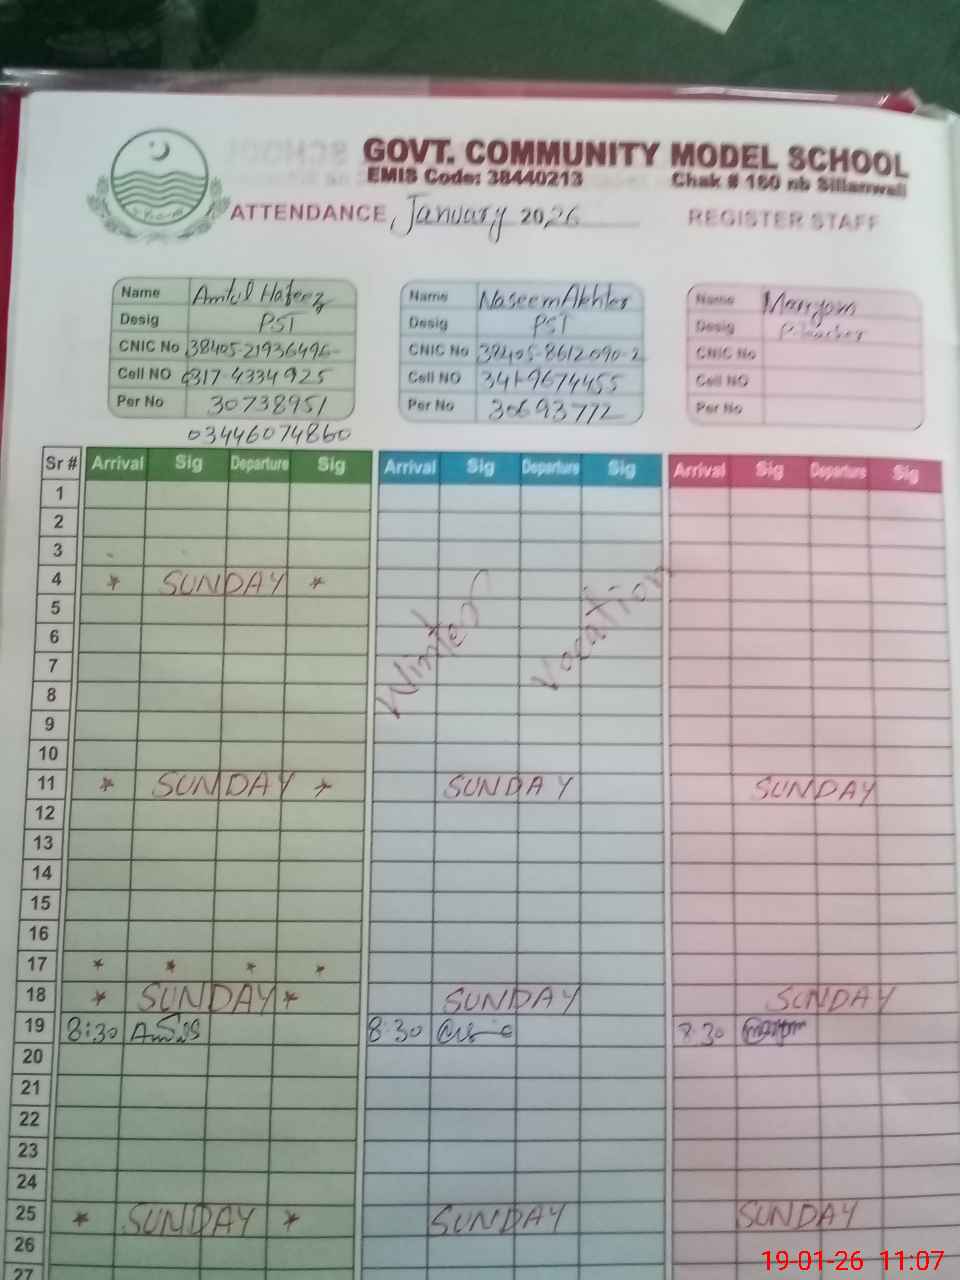 GOVT. COMMUNITY MODEL SCHOOL
EMIS Code: 38440213 Chak # 160 nb Sillanwali
ATTENDANCE, January 2026 REGISTER STAFF
Name Amtul Hafeez Name Naseem Akhter Name Maryam
Desig PST Desig PST Desig
CNIC No 38405-21936496- CNIC No 38405-8612090-2 CNIC No
Cell NO 0317-4334925 Cell NO 341-9674455 Cell NO
Per No 30738951 Per No 30693772 Per No
03446074860
Sr # Arrival Sig Departure Sig Arrival Sig Departure Sig Arrival Sig Departure Sig
1
2
3
4 * SUNDAY *
5
6
Winter Vacation
7
8
9
10
11 * SUNDAY * SUNDAY SUNDAY
12
13
14
15
16
17 * * * *
18 * SUNDAY * SUNDAY SUNDAY
19 8:30 8:30 8:30
20
21
22
23
24
25 * SUNDAY * SUNDAY SUNDAY
26
27
19-01-26 11:07